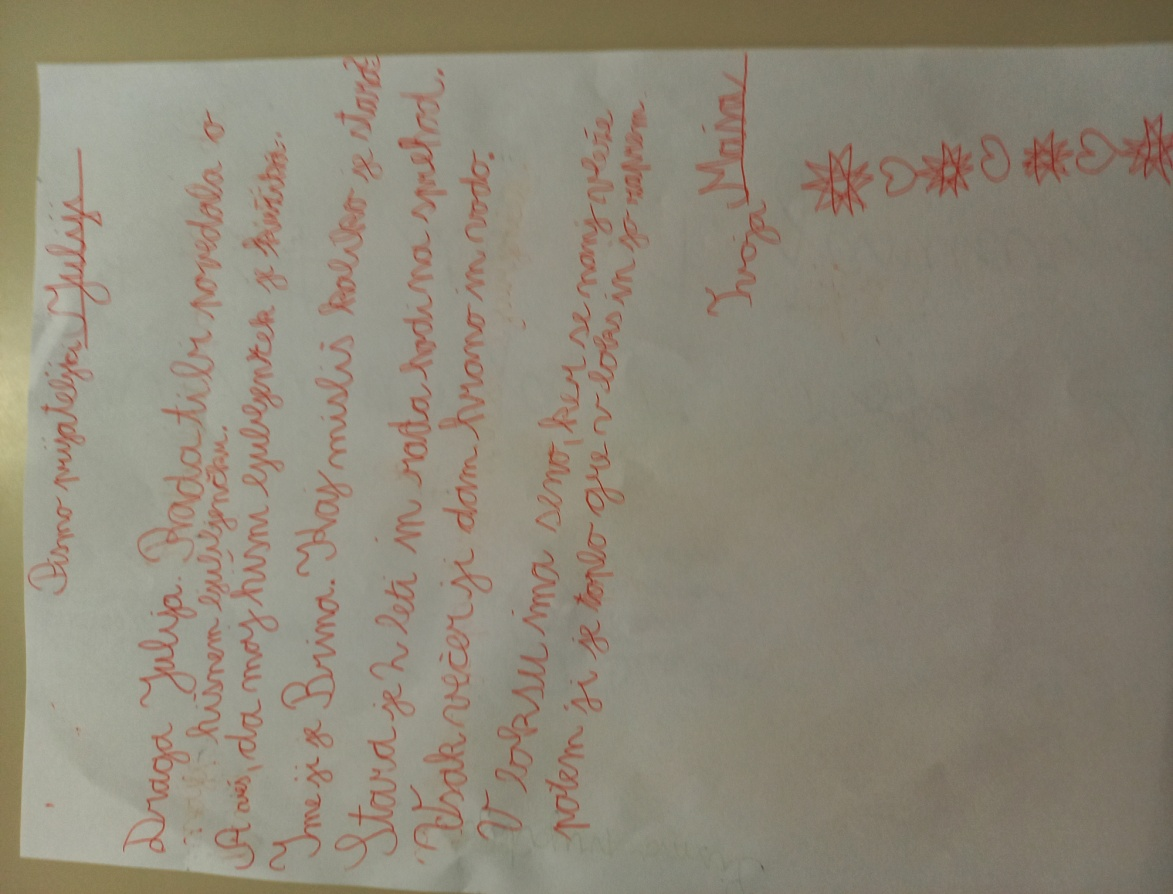 Pismo prijateljici Juliji
Draga Julija. Rada ti bi povedala o
hišnem ljubljenčku.
A veš, da moj hišni ljubljenček je
Ime ji je Brina. Kaj misliš koliko je stara?
Stara je 2 leti in rada hodi na sprehod.
Vsak večer ji dam hrano in vodo.
V boksu ima seno, ker se nanj vleže
potem ji je toplo gre v boks in jo zaprem.
Tvoja